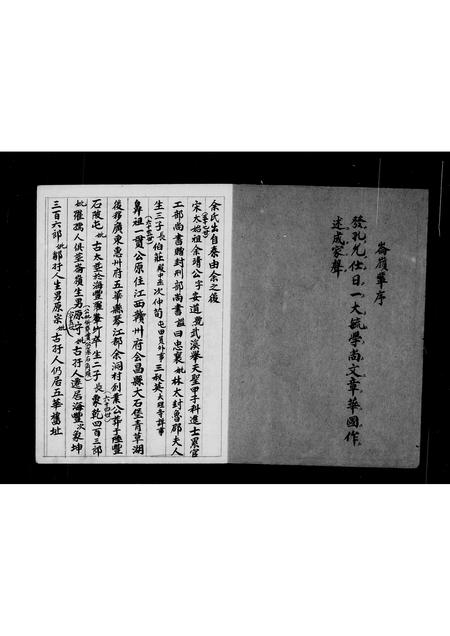 崙嶺輩序
發孔允仕日一大毓學尚文章華國作
述成家聲
余氏出自秦由余之後
宋太始祖余靖公字安道號武溪舉天聖甲子科進士累官
工部尚書贈封刑部尚書謚曰忠襄妣林太封魯郡夫人
生三子長伯莊殿中丞次仲荀屯田員外事三叔英大理寺評事
鼻祖一貫公原住江西贛州府會昌縣大石堡青草湖
後移廣東惠州府五華縣琴江都余洞村創業公葬于陸豐
石陂屯妣古太葬於海豐羅輋竹生二子長東乾四百三郎
妣羅孺人俱葬崙嶺生男源守妣古孖人遷居海豐次象坤
三百六郎妣鄒孖人生男原宗妣古孖人仍居五華舊址